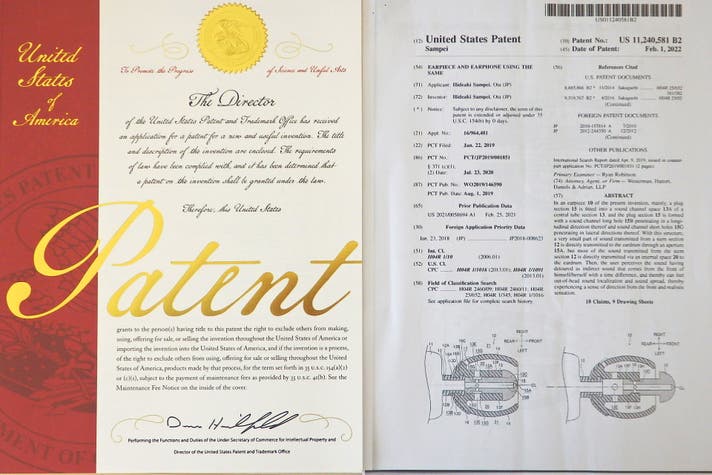 United
States
of
America
To Promote the Progress
of Science and Useful Arts
The Director
of the United States Patent and Trademark Office has received
an application for a patent for a new and useful invention. The title
and description of the invention are enclosed. The requirements
of law have been complied with, and it has been determined that
a patent on the invention shall be granted under the law.
Therefore, this United States
Patent
grants to the person(s) having title to this patent the right to exclude others from making,
using, offering for sale, or selling the invention throughout the United States of America or
importing the invention into the United States of America, and if the invention is a process,
of the right to exclude others from using, offering for sale or selling throughout the United
States of America, products made by that process, for the term set forth in 35 U.S.C. 154(a)(2)
or (c)(1), subject to the payment of maintenance fees as provided by 35 U.S.C. 41(b). See the
Maintenance Fee Notice on the inside of the cover.
Performing the Functions and Duties of the Under Secretary of Commerce for Intellectual Property and
Director of the United States Patent and Trademark Office
US011240581B2
(12) United States Patent
Sampei
(10) Patent No.: US 11,240,581 B2
(45) Date of Patent: Feb. 1, 2022
(54) EARPIECE AND EARPHONE USING THE
SAME
(71) Applicant: Hideaki Sampei, Ota (JP)
(72) Inventor: Hideaki Sampei, Ota (JP)
( * ) Notice: Subject to any disclaimer, the term of this
patent is extended or adjusted under 35
U.S.C. 154(b) by 0 days.
(21) Appl. No.: 16/964,481
(22) PCT Filed: Jan. 22, 2019
(86) PCT No.: PCT/JP2019/001851
§ 371 (c)(1),
(2) Date: Jul. 23, 2020
(87) PCT Pub. No.: WO2019/146590
PCT Pub. Date: Aug. 1, 2019
(65) Prior Publication Data
US 2021/0058694 A1 Feb. 25, 2021
(30) Foreign Application Priority Data
Jan. 23, 2018 (JP)
(51) Int. Cl.
H04R 1/10 (2006.01)
(52) U.S. Cl.
CPC H04R 1/1016 (2013.01); H04R 1/1091
(2013.01)
(58) Field of Classification Search
CPC
See application file for complete search history.
(56) References Cited
U.S. PATENT DOCUMENTS
(Continued)
FOREIGN PATENT DOCUMENTS
(Continued)
OTHER PUBLICATIONS
Primary Examiner — Ryan Robinson
(74) Attorney, Agent, or Firm — Westerman, Hattori,
Daniels & Adrian, LLP
(57) ABSTRACT
In an earpiece 10 of the present invention, mainly, a plug
section 15 is fitted into a sound channel space 13A of a
central tube section 13, and the plug section 15 is formed
with a sound channel long hole 15B penetrating in a
longitudinal direction thereof and sound channel short holes 15C
penetrating in lateral directions thereof. With this structure,
a very small part of sound transmitted from a stem section
12 is directly transmitted to the eardrum through an aperture
15A, but most of the sound transmitted from the stem
section 12 is transmitted via an internal space 20 to
the eardrum.
10 Claims, 9 Drawing Sheets
RIGHT
REAR FRONT
LEFT
RIGHT
REAR FRONT
LEFT